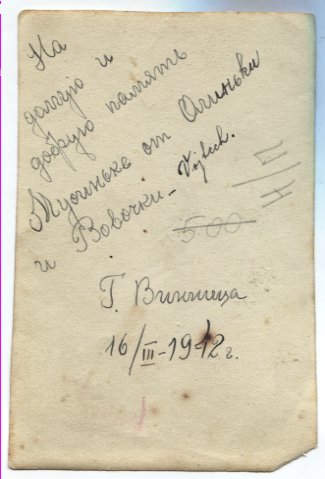 На
долгую и
добрую память
Мусиньке от Олиньки
и Вовочки
500
Г. Винница
16/III-1942 г.